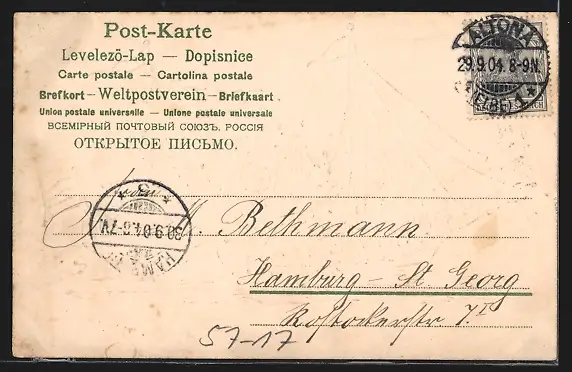 Post-Karte
Levelezö-Lap — Dopisnice
Carte postale — Cartolina postale
Brefkort — Weltpostverein — Briefkaart
Union postale universelle — Unione postale universale
ВСЕМІРНЫЙ ПОЧТОВЫЙ СОЮЗЪ. РОССІЯ
ОТКРЫТОЕ ПИСЬМО.
ALTONA
29.9.04. 8-9N.
(ELBE) 1
* 3 *
30.9.04. 6-7V.
HAMBURG
M. Bethmann
Hamburg - St Georg
Rostockerstr 7 I
57-17